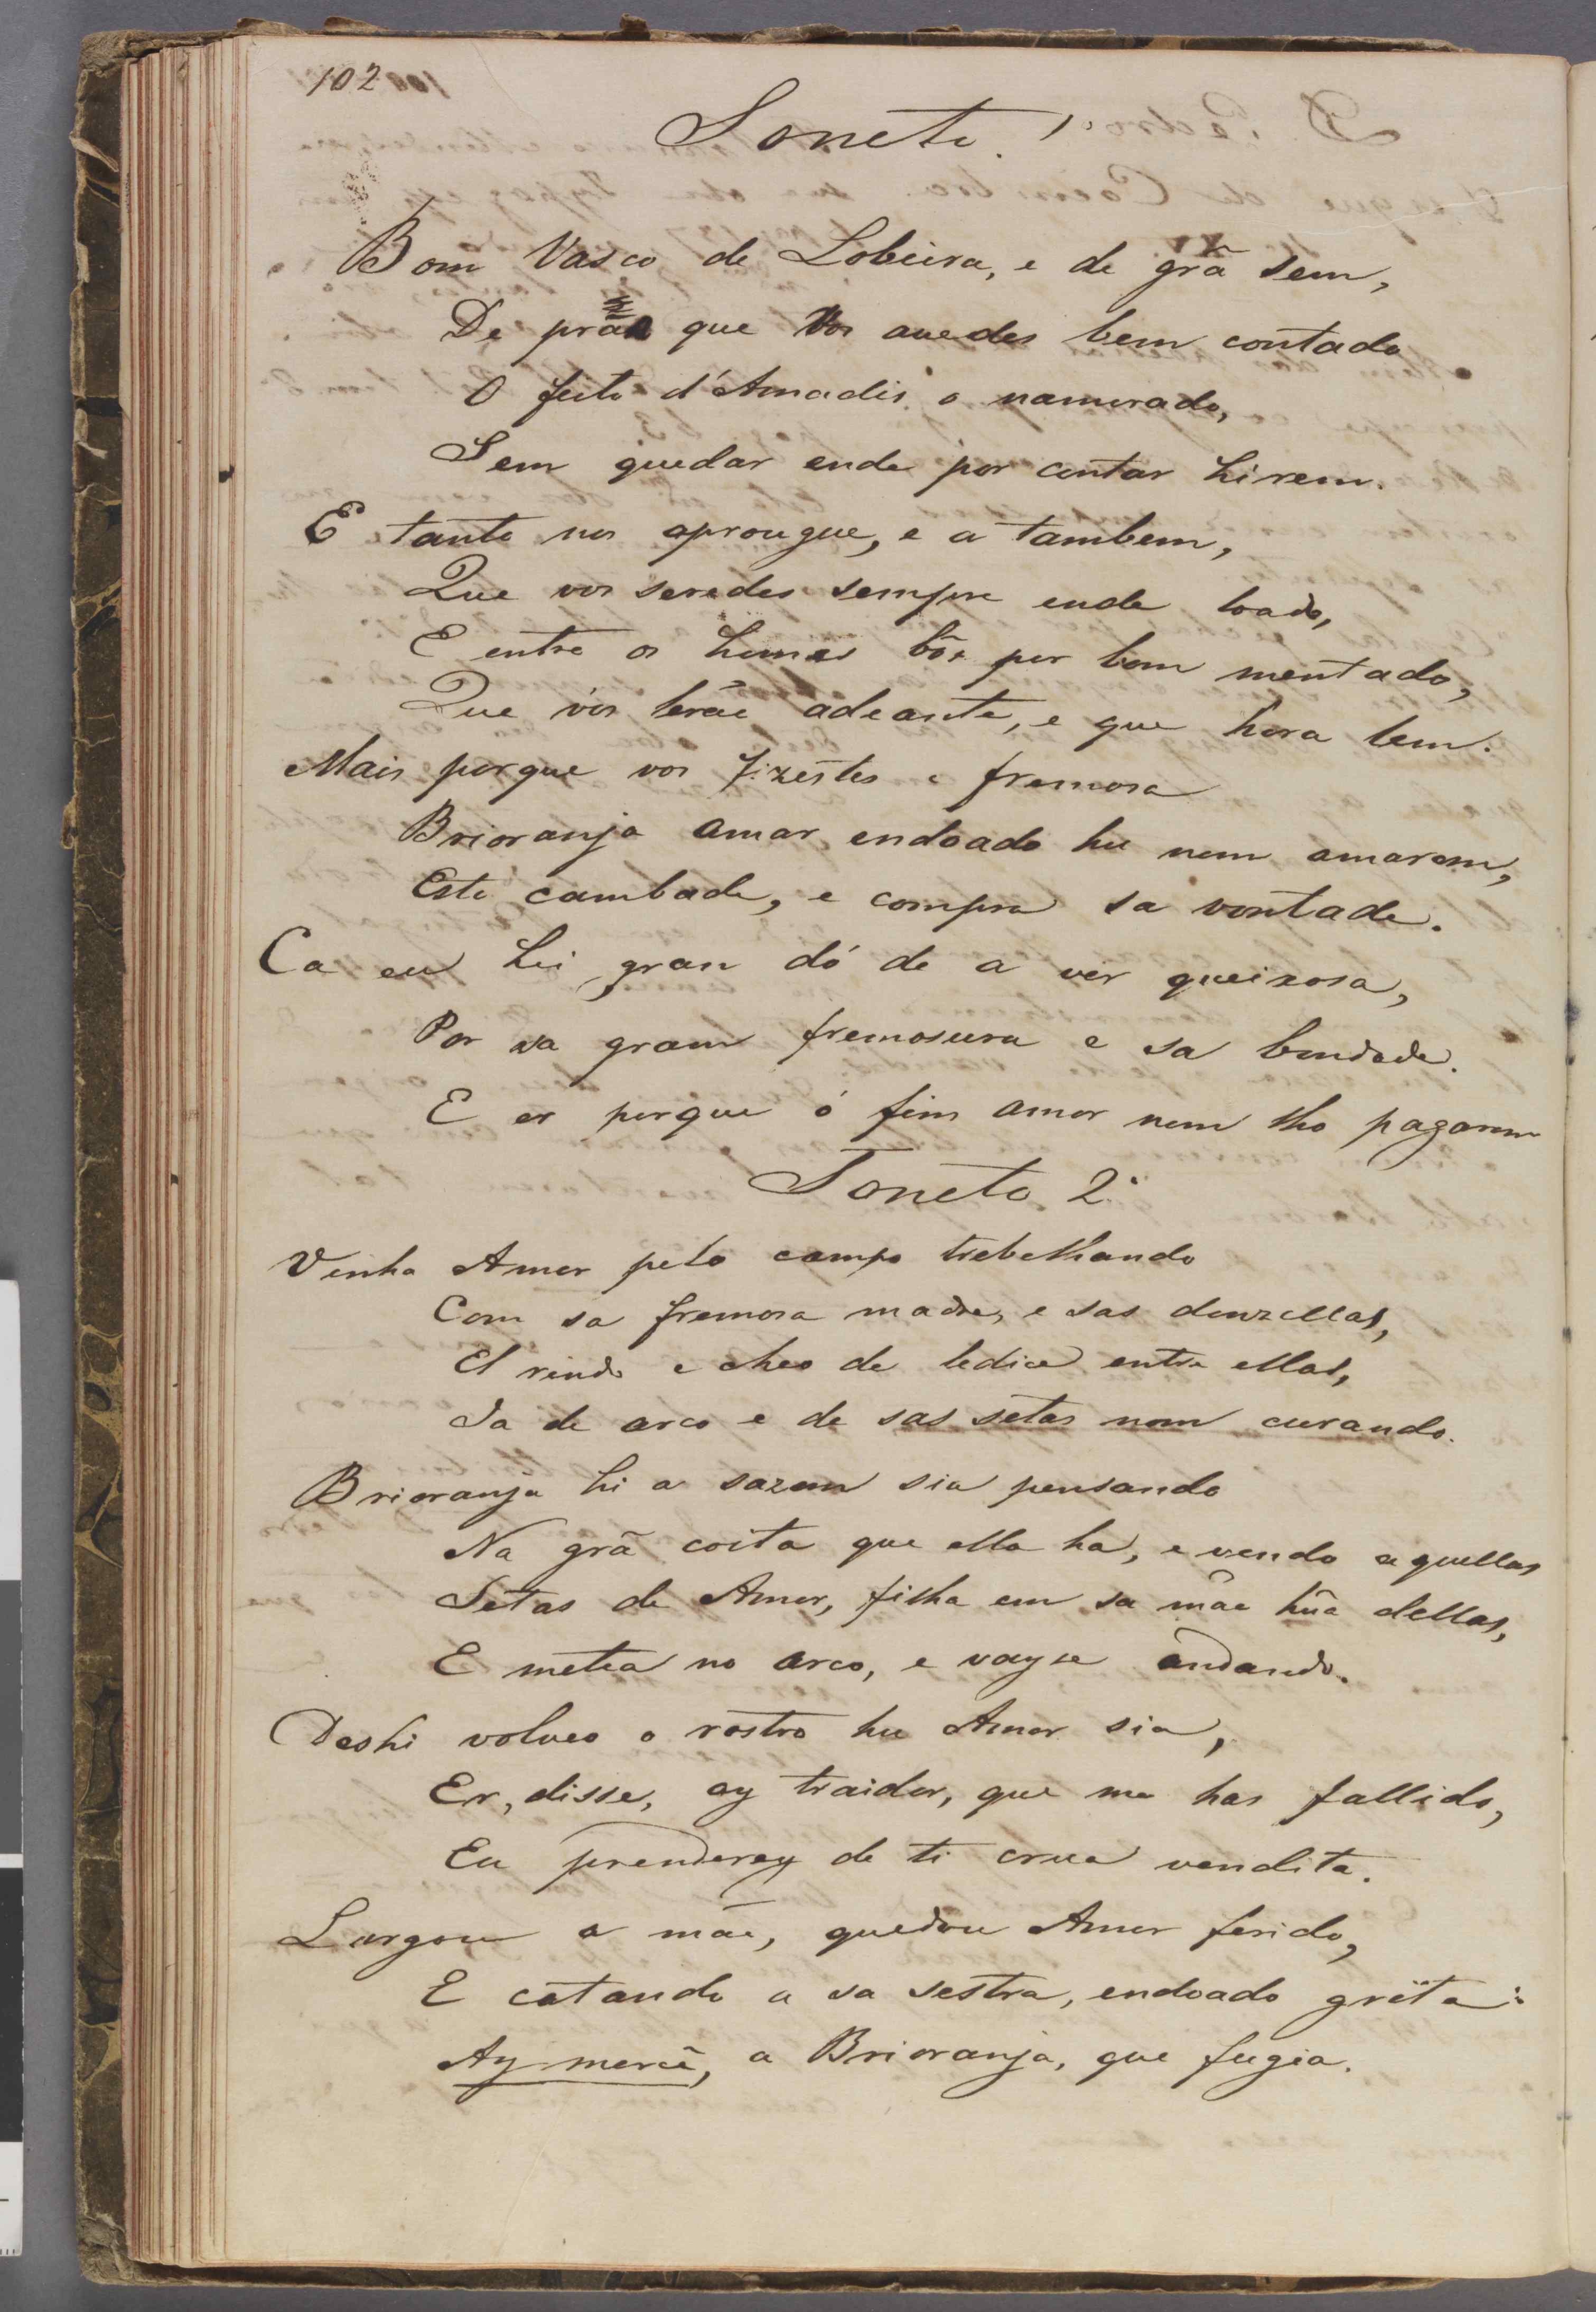 102
Soneto 1º
Bom Vasco de Lobeira, e de grã sem,
De prã que vos auedes bem contado
O feito d'Amadis o namorado,
Sem quedar ende por contar hirem.
E tanto nos aprougue, e a tambem,
Que vos seredes sempre ende loado,
E entre os homẽs bõs por bom mentado,
Que vos lerãe adeante, e que hora lem.
Mais porque vos fizestes a fremosa
Brioranja amar endoado hu nom amarom,
Esto cambade, e compra sa vontade.
Ca eu hei gran dó de a ver queixosa,
Por sa gram fremosura e sa bondade.
E er porque ó fim amor nom lho pagarom
Soneto 2º
Vinha Amor pelo campo trebelhando
Com sa fremosa madre, e sas donzellas,
El rindo e cheo de ledice entre ellas,
Ja de arco e de sas setas nom curando.
Brioranja hi a sazom sia pensando
Na grã coita que ella ha, e vendo aquellas
Setas de Amor, filha em sa mãe hũa dellas,
E metea no arco, e vayse andando.
Deshi volveo o rostro hu Amor sia,
Er, disse, ay traidor, que me has fallido,
Eu prenderey de ti crua vendita.
Largou a mãe, quedou Amor ferido,
E catando a sa sestra, endoado grita:
Ay mercê, a Brioranja, que fugia.